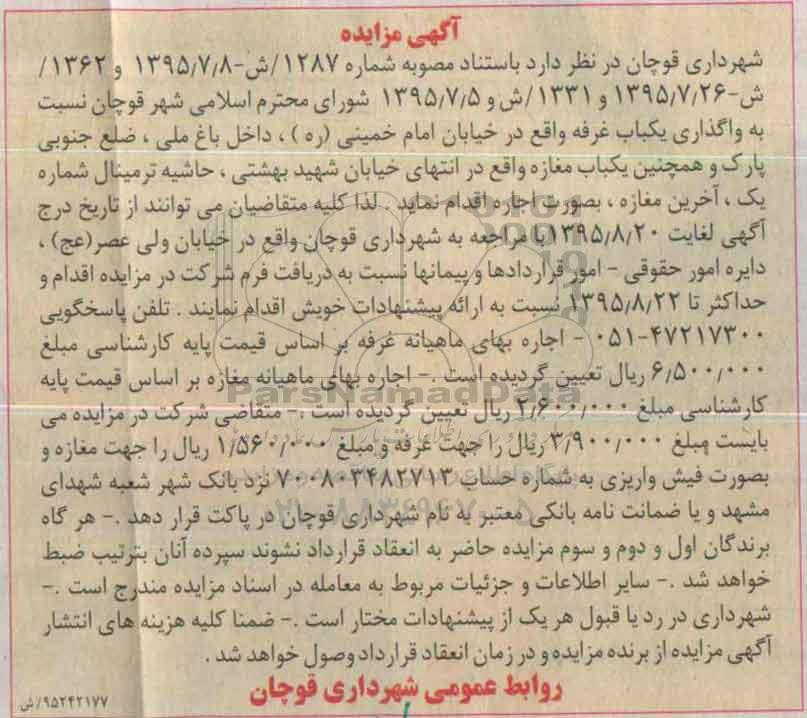 آگهی مزایده
شهرداری قوچان در نظر دارد باستناد مصوبه شماره ۱۲۸۷/ش-۱۳۹۵/۷/۸ و ۱۳۶۲/
ش-۱۳۹۵/۷/۲۶ و ۱۳۳۱/ش و ۱۳۹۵/۷/۵ شورای محترم اسلامی شهر قوچان نسبت
به واگذاری یکباب غرفه واقع در خیابان امام خمینی (ره) ، داخل باغ ملی ، ضلع جنوبی
پارک و همچنین یکباب مغازه واقع در انتهای خیابان شهید بهشتی ، حاشیه ترمینال شماره
یک ، آخرین مغازه ، بصورت اجاره اقدام نماید . لذا کلیه متقاضیان می توانند از تاریخ درج
آگهی لغایت ۱۳۹۵/۸/۲۰ با مراجعه به شهرداری قوچان واقع در خیابان ولی عصر(عج) ،
دایره امور حقوقی - امور قراردادها و پیمانها نسبت به دریافت فرم شرکت در مزایده اقدام و
حداکثر تا ۱۳۹۵/۸/۲۲ نسبت به ارائه پیشنهادات خویش اقدام نمایند . تلفن پاسخگویی
۰۵۱-۴۷۲۱۷۳۰۰ - اجاره بهای ماهیانه غرفه بر اساس قیمت پایه کارشناسی مبلغ
۶/۵۰۰/۰۰۰ ریال تعیین گردیده است .- اجاره بهای ماهیانه مغازه بر اساس قیمت پایه
کارشناسی مبلغ ۲/۶۰۰/۰۰۰ ریال تعیین گردیده است .- متقاضی شرکت در مزایده می
بایست مبلغ ۳/۹۰۰/۰۰۰ ریال را جهت غرفه و مبلغ ۱/۵۶۰/۰۰۰ ریال را جهت مغازه و
بصورت فیش واریزی به شماره حساب ۷۰۰۸۰۳۴۸۲۷۱۳ نزد بانک شهر شعبه شهدای
مشهد و یا ضمانت نامه بانکی معتبر به نام شهرداری قوچان در پاکت قرار دهد .- هر گاه
برندگان اول و دوم و سوم مزایده حاضر به انعقاد قرارداد نشوند سپرده آنان بترتیب ضبط
خواهد شد .- سایر اطلاعات و جزئیات مربوط به معامله در اسناد مزایده مندرج است .-
شهرداری در رد یا قبول هر یک از پیشنهادات مختار است .- ضمنا کلیه هزینه های انتشار
آگهی مزایده از برنده مزایده و در زمان انعقاد قرارداد وصول خواهد شد .
روابط عمومی شهرداری قوچان
۹۵۲۴۲۱۷۷/ش
ParsNamadData